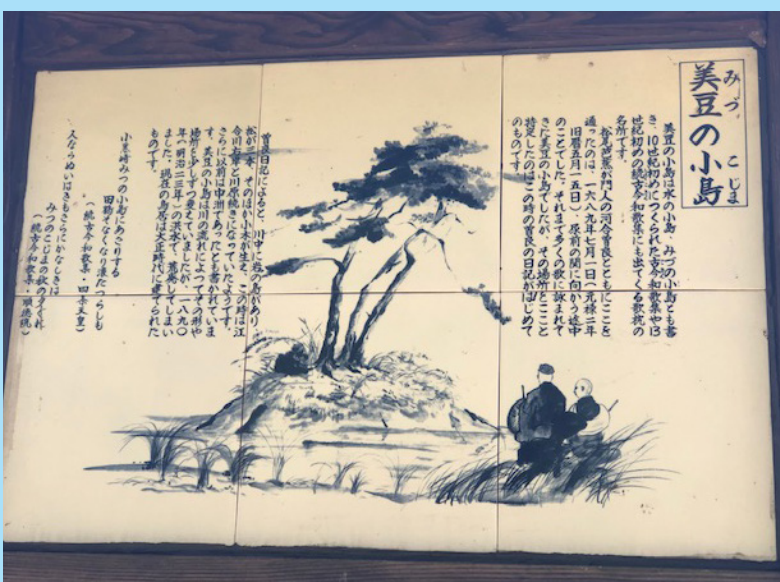 美豆の小島
みづ こじま
美豆の小島は水の小島、みづの小島とも書
き、10世紀初めにつくられた古今和歌集や13
世紀初めの続古今和歌集にも出てくる歌枕の
名所です。
松尾芭蕉が門人の河合曽良とともにここを
通ったのは、一六八九年七月一日(元禄二年
旧暦五月一五日)、尿前の関に向かう途中
のことでした。それまで多くの歌に詠まれて
きた美豆の小島でしたが、その場所をここと
特定したのはこの時の曽良の日記がはじめて
のものです。
曽良日記によると、川中に岩の島があり、
松が三本、そのほか小木が生え、この時は江
合川右岸と川原続きになっていたようです。
さらに以前は中洲であったとも書かれていま
す。美豆の小島は川の流れによってその形や
場所を少しずつ変えていましたが、一八九〇
年(明治二三年)の洪水で、荒廃してしまい
ました。現在の鳥居は大正時代に建てられた
ものです。
小黒崎みつの小島にあさりする
田鶴そなくなり波たつらしも
(続古今和歌集・四条天皇)
人ならぬいはきもさらにかなしきは
みつのこじまの秋のゆふくれ
(続古今和歌集・順徳院)